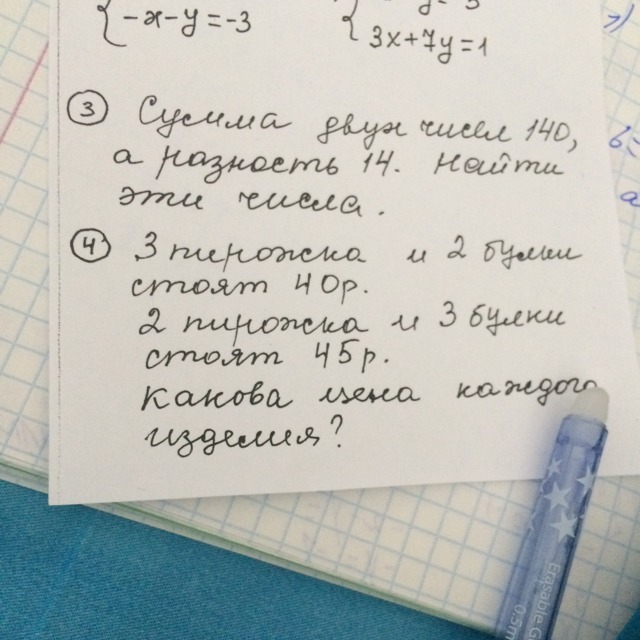 -x-y=-3
3x+7y=1
③ Сумма двух чисел 140,
а разность 14. Найти
эти числа.
④ 3 пирожка и 2 булки
стоят 40р.
2 пирожка и 3 булки
стоят 45р.
Какова цена каждого
изделия?